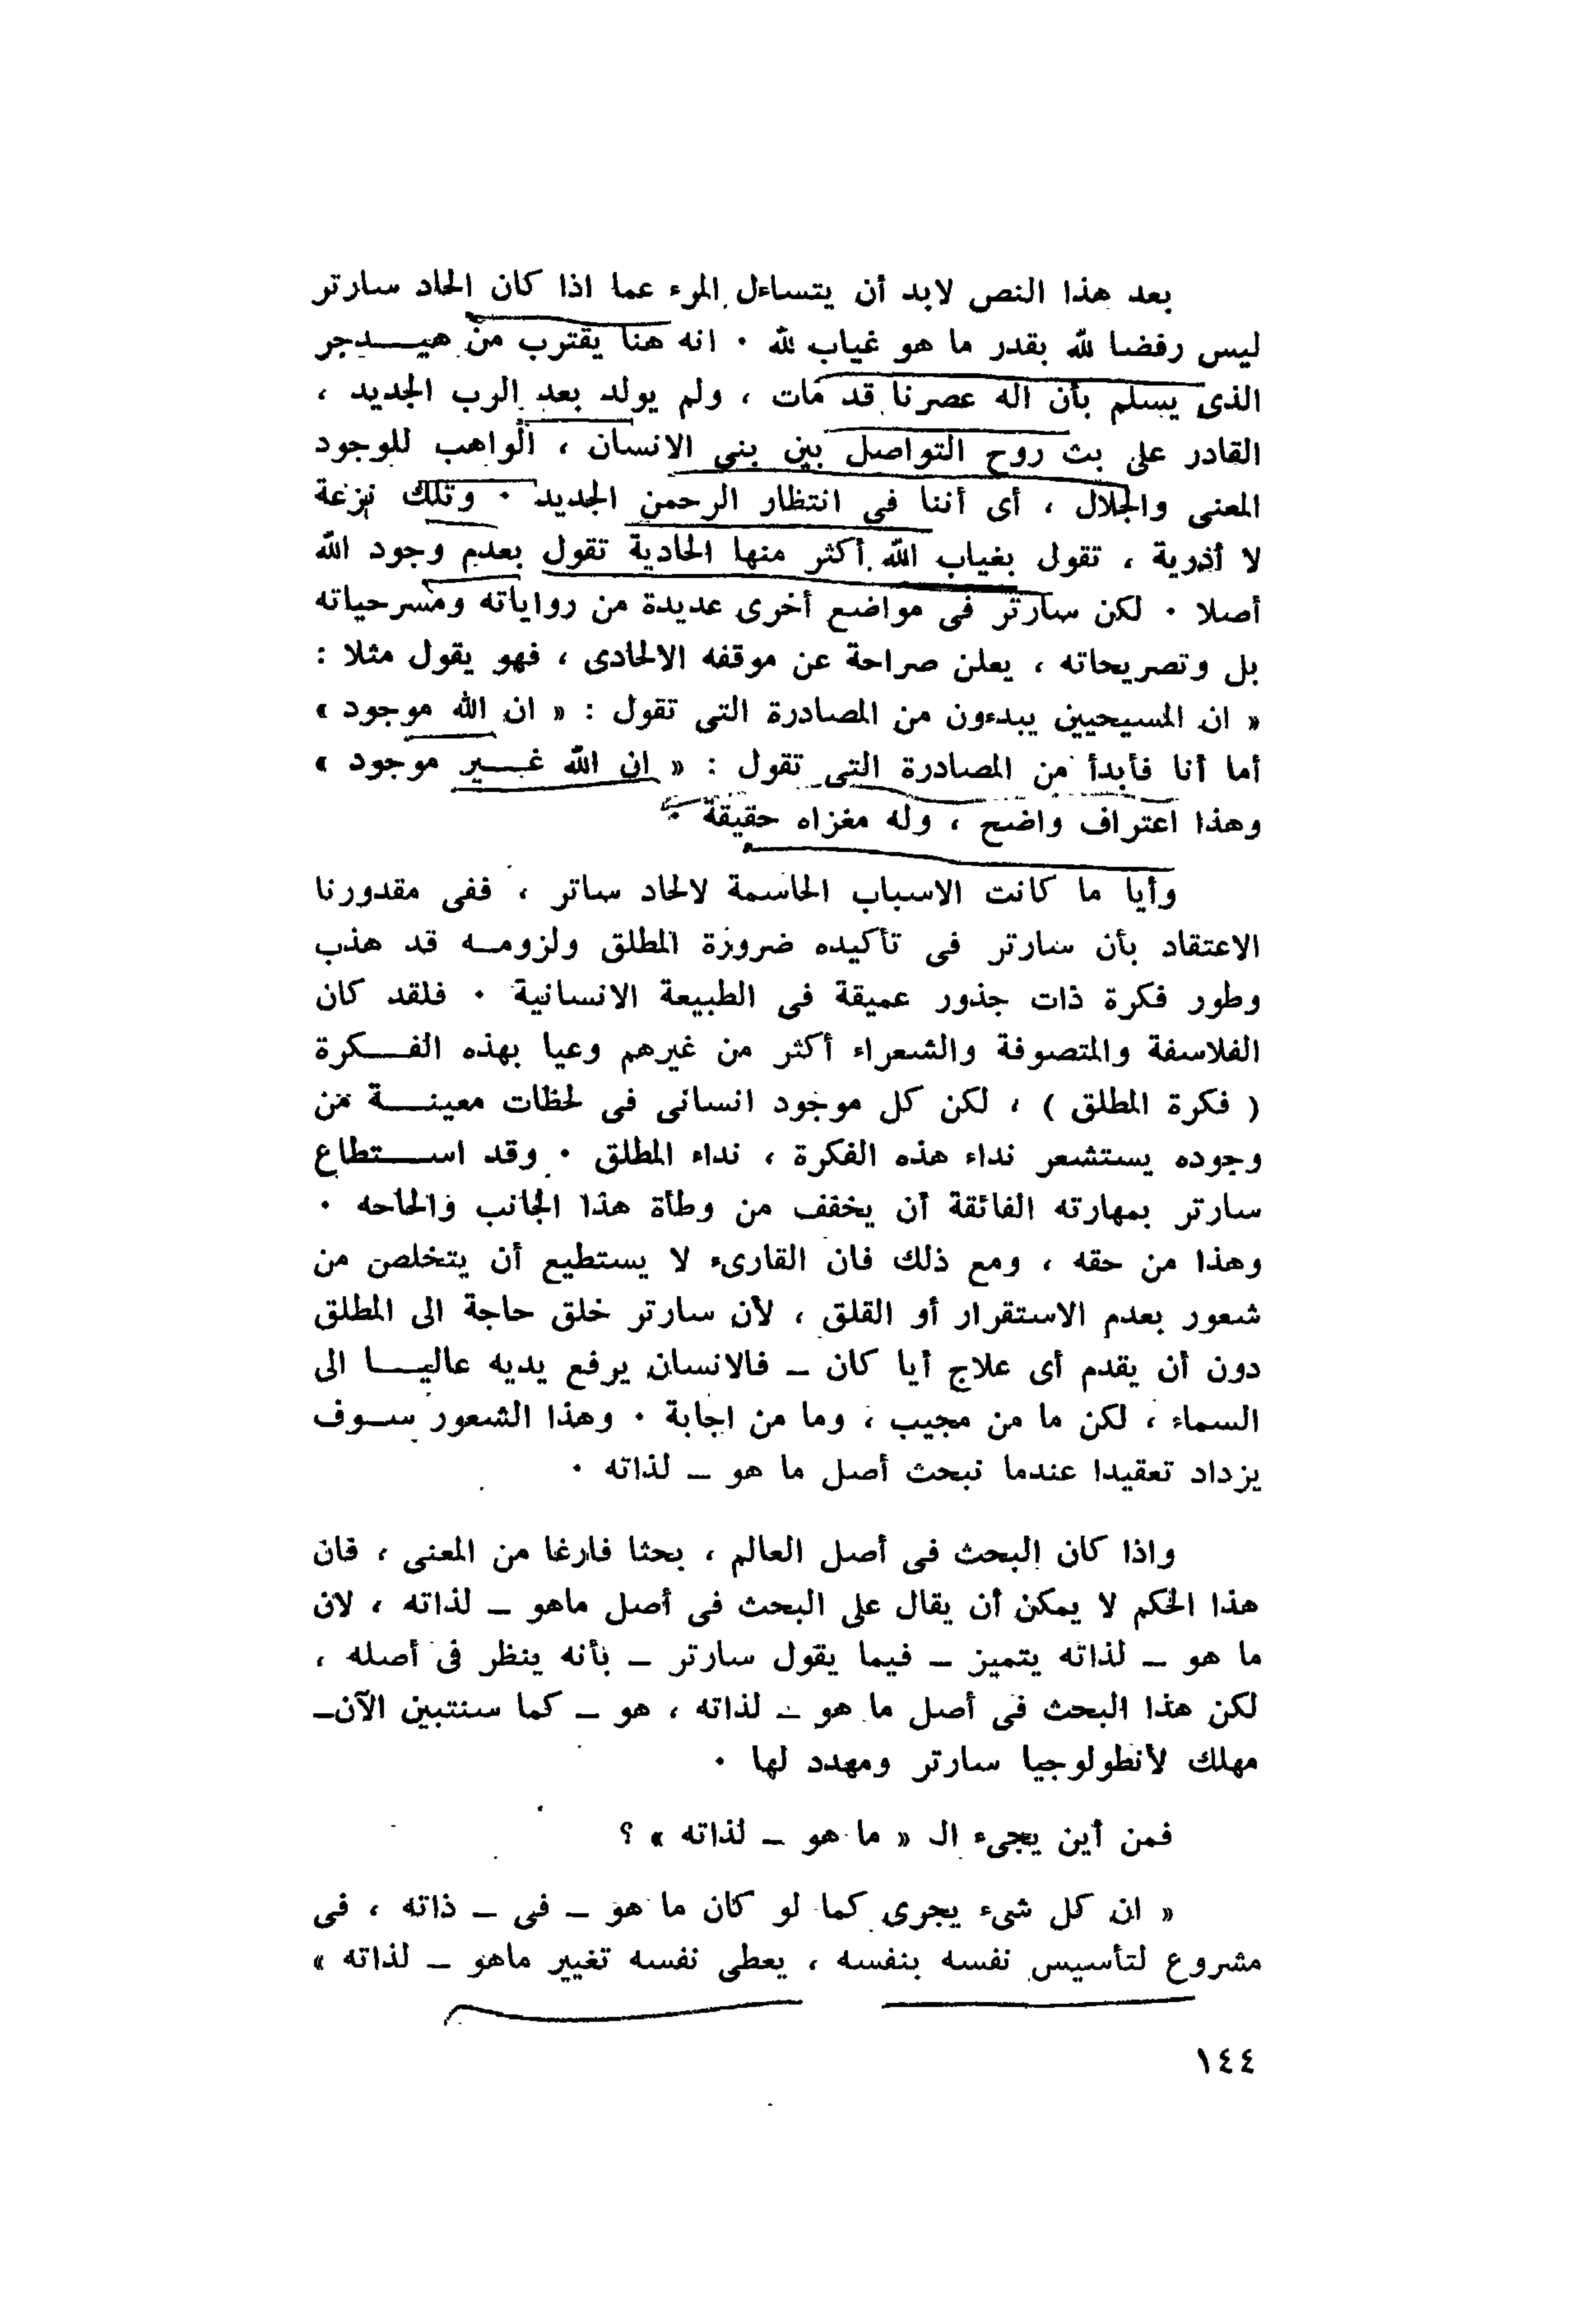 بعد هذا النص لابد أن يتساءل المرء عما اذا كان الحاد سارتر
ليس رفضا لله بقدر ما هو غياب لله . انه هنا يقترب من هيــدجر
الذى يسلم بأن اله عصرنا قد مات ، ولم يولد بعد الرب الجديد ،
القادر على بث روح التواصل بين بنى الانسان ، الواهب للوجود
المعنى والجلال ، أى أننا فى انتظار الرحمن الجديد . وتلك نزعة
لا أدرية ، تقول بغياب الله أكثر منها الحادية تقول بعدم وجود الله
أصلا . لكن سارتر فى مواضع أخرى عديدة من رواياته ومسرحياته
بل وتصريحاته ، يعلن صراحة عن موقفه الالحادى ، فهو يقول مثلا :
« ان المسيحيين يبدءون من المصادرة التى تقول : « ان الله موجود »
أما أنا فأبدأ من المصادرة التى تقول : « ان الله غــير موجود »
وهذا اعتراف واضح ، وله مغزاه حقيقة .
وأيا ما كانت الاسباب الحاسمة لالحاد ساتر ، ففى مقدورنا
الاعتقاد بأن سارتر فى تأكيده ضرورة المطلق ولزومــه قد هذب
وطور فكرة ذات جذور عميقة فى الطبيعة الانسانية . فلقد كان
الفلاسفة والمتصوفة والشعراء أكثر من غيرهم وعيا بهذه الفــكرة
( فكرة المطلق ) ، لكن كل موجود انسانى فى لحظات معينــة من
وجوده يستشعر نداء هذه الفكرة ، نداء المطلق . وقد اســتطاع
سارتر بمهارته الفائقة أن يخفف من وطأة هذا الجانب والحاحه .
وهذا من حقه ، ومع ذلك فان القارىء لا يستطيع أن يتخلص من
شعور بعدم الاستقرار أو القلق ، لأن سارتر خلق حاجة الى المطلق
دون أن يقدم أى علاج أيا كان ــ فالانسان يرفع يديه عاليــا الى
السماء ، لكن ما من مجيب ، وما من اجابة . وهذا الشعور ســوف
يزداد تعقيدا عندما نبحث أصل ما هو ــ لذاته .
واذا كان البحث فى أصل العالم ، بحثا فارغا من المعنى ، فان
هذا الحكم لا يمكن أن يقال على البحث فى أصل ماهو ــ لذاته ، لان
ما هو ــ لذاته يتميز ــ فيما يقول سارتر ــ بأنه ينظر فى أصله ،
لكن هذا البحث فى أصل ما هو ــ لذاته ، هو ــ كما سنتبين الآن ــ
مهلك لأنطولوجيا سارتر ومهدد لها .
فمن أين يجىء الـ « ما هو ــ لذاته » ؟
« ان كل شىء يجرى كما لو كان ما هو ــ فى ــ ذاته ، فى
مشروع لتأسيس نفسه بنفسه ، يعطى نفسه تغيير ماهو ــ لذاته »
١٤٤